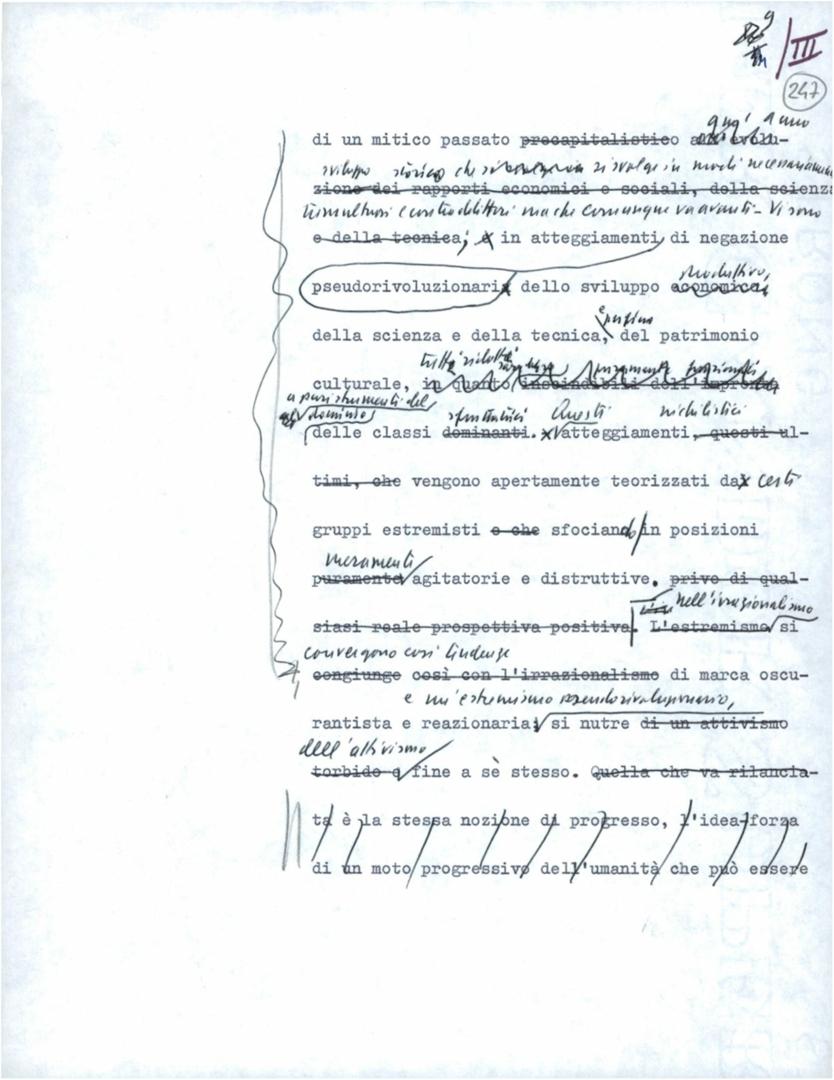 III
247
qua' anno
di un mitico passato precapitalistico all'evolu-
sviluppo storico che si svolge in modi necessariamente
zione dei rapporti economici e sociali, della scienza
tumultuosi e contraddittori ma che comunque va avanti - Vi sono
e della tecnica; e in atteggiamenti di negazione
produttivo,
pseudorivoluzionari dello sviluppo economico,
e perfino
della scienza e della tecnica, del patrimonio
culturale, in quanto inscindibili dall'impronta
a puri strumenti del
dominio
sfruttatrici Questi nichilistici
delle classi dominanti. atteggiamenti, questi ul-
timi, che vengono apertamente teorizzati da certi
gruppi estremisti e che sfociando in posizioni
meramenti
puramente agitatorie e distruttive. prive di qual-
nell'irrazionalismo
siasi reale prospettiva positiva. L'estremismo si
convergono così
congiunge così con l'irrazionalismo di marca oscu-
e un'estremismo pseudorivoluzionario,
rantista e reazionaria; si nutre di un attivismo
dell'attivismo
torbido e fine a sè stesso. Quella che va rilancia-
ta è la stessa nozione di progresso, l'idea-forza
di un moto progressivo dell'umanità che può essere